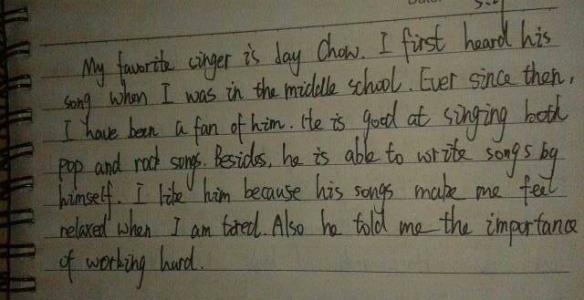 My favorite cinger is day Chow. I first heard his
song when I was in the middle school. Ever since then,
I have been a fan of him. He is good at singing both
pop and rock songs. Besides, he is able to write songs by
himself. I like him because his songs make me feel
relaxed when I am tired. Also he told me the importance
of working hard.